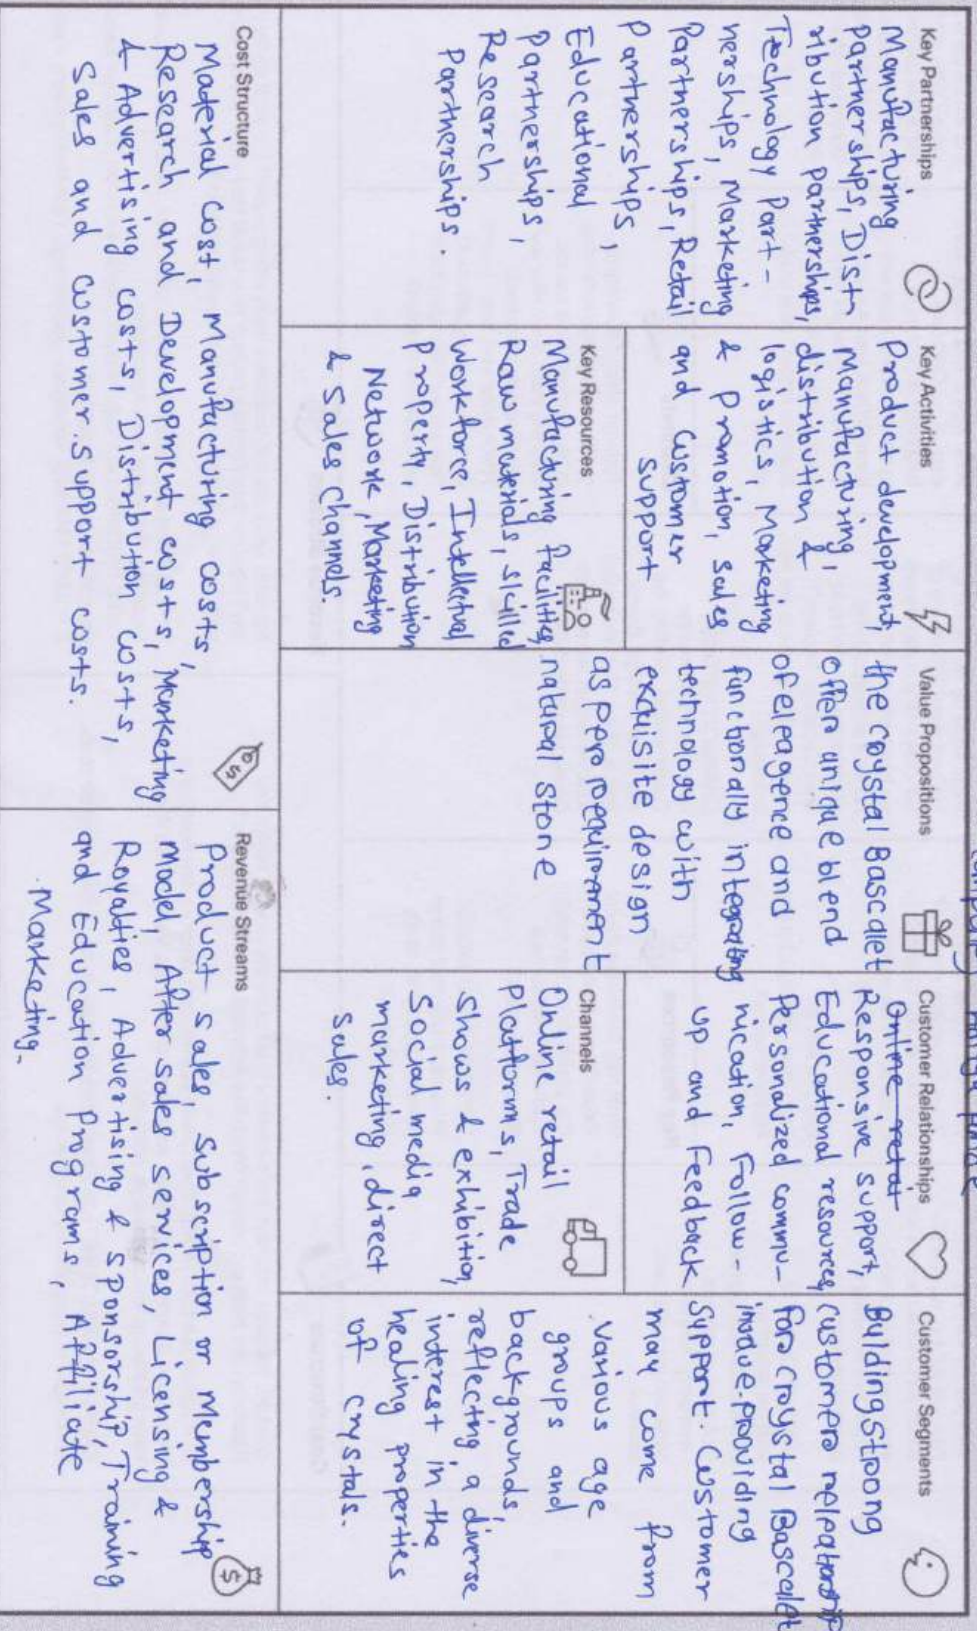 Key Partnerships
Manufacturing
partnerships, Dist-
ribution partnerships,
Technology Part-
nerships, Marketing
Partnerships, Retail
Partnerships,
Educational
Partnerships,
Research
Partnerships.
Key Activities
Product development,
Manufacturing,
distribution &
logistics, Marketing
& Promotion, sales
and customer
support
Key Resources
Manufacturing facilities,
Raw materials, skilled
Workforce, Intellectual
Property, Distribution
Network, Marketing
& sales channels.
Value Propositions
the crystal Bascalet
offer unique blend
of eleagence and
functionally integrating
technology with
exquisite design
as per requirement
natural stone
Customer Relationships
Online retai
Responsive support,
Educational resources,
Personalized commu-
nication, Follow-
up and Feedback
Channels
Online retail
Platforms, Trade
shows & exhibition,
Social media
marketing, direct
sales.
Customer Segments
Building Strong
customer relationship
for crystal Bascalet
inodue. providing
Support. Customer
may come from
various age
groups and
backgrounds,
reflecting a diverse
interest in the
healing properties
of crystals.
Cost Structure
Material cost, Manufacturing costs,
Research and Development costs, Marketing
& Advertising costs, Distribution costs,
Sales and customer support costs.
Revenue Streams
Product sales, Subscription or Membership
Model, After sales services, Licensing &
Royalties, Advertising & sponsorship, Training
and Education Programs, Affiliate
Marketing.